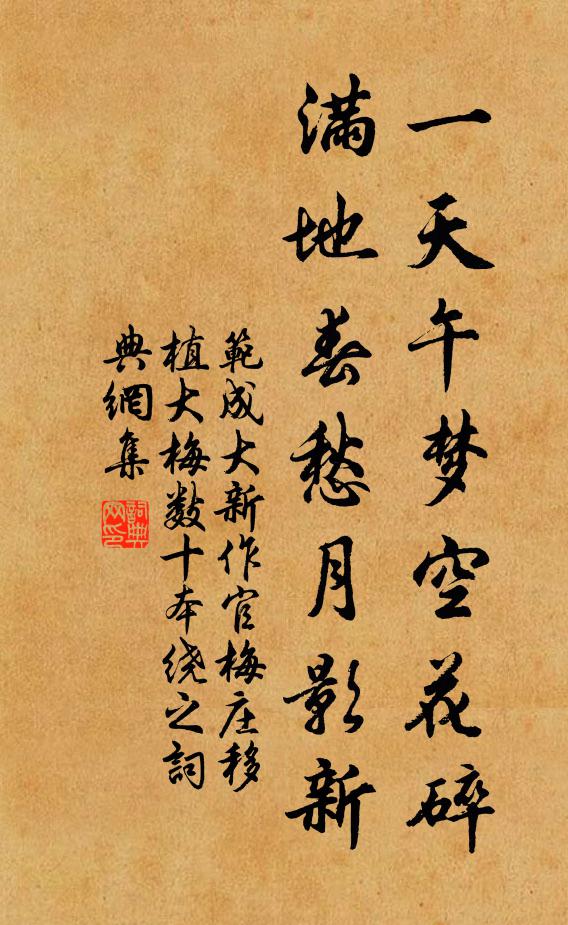 一天午梦空花碎
满地春愁月影新
範成大新作官梅庄移
植大梅数十本绕之詞
典網集
詞典网印